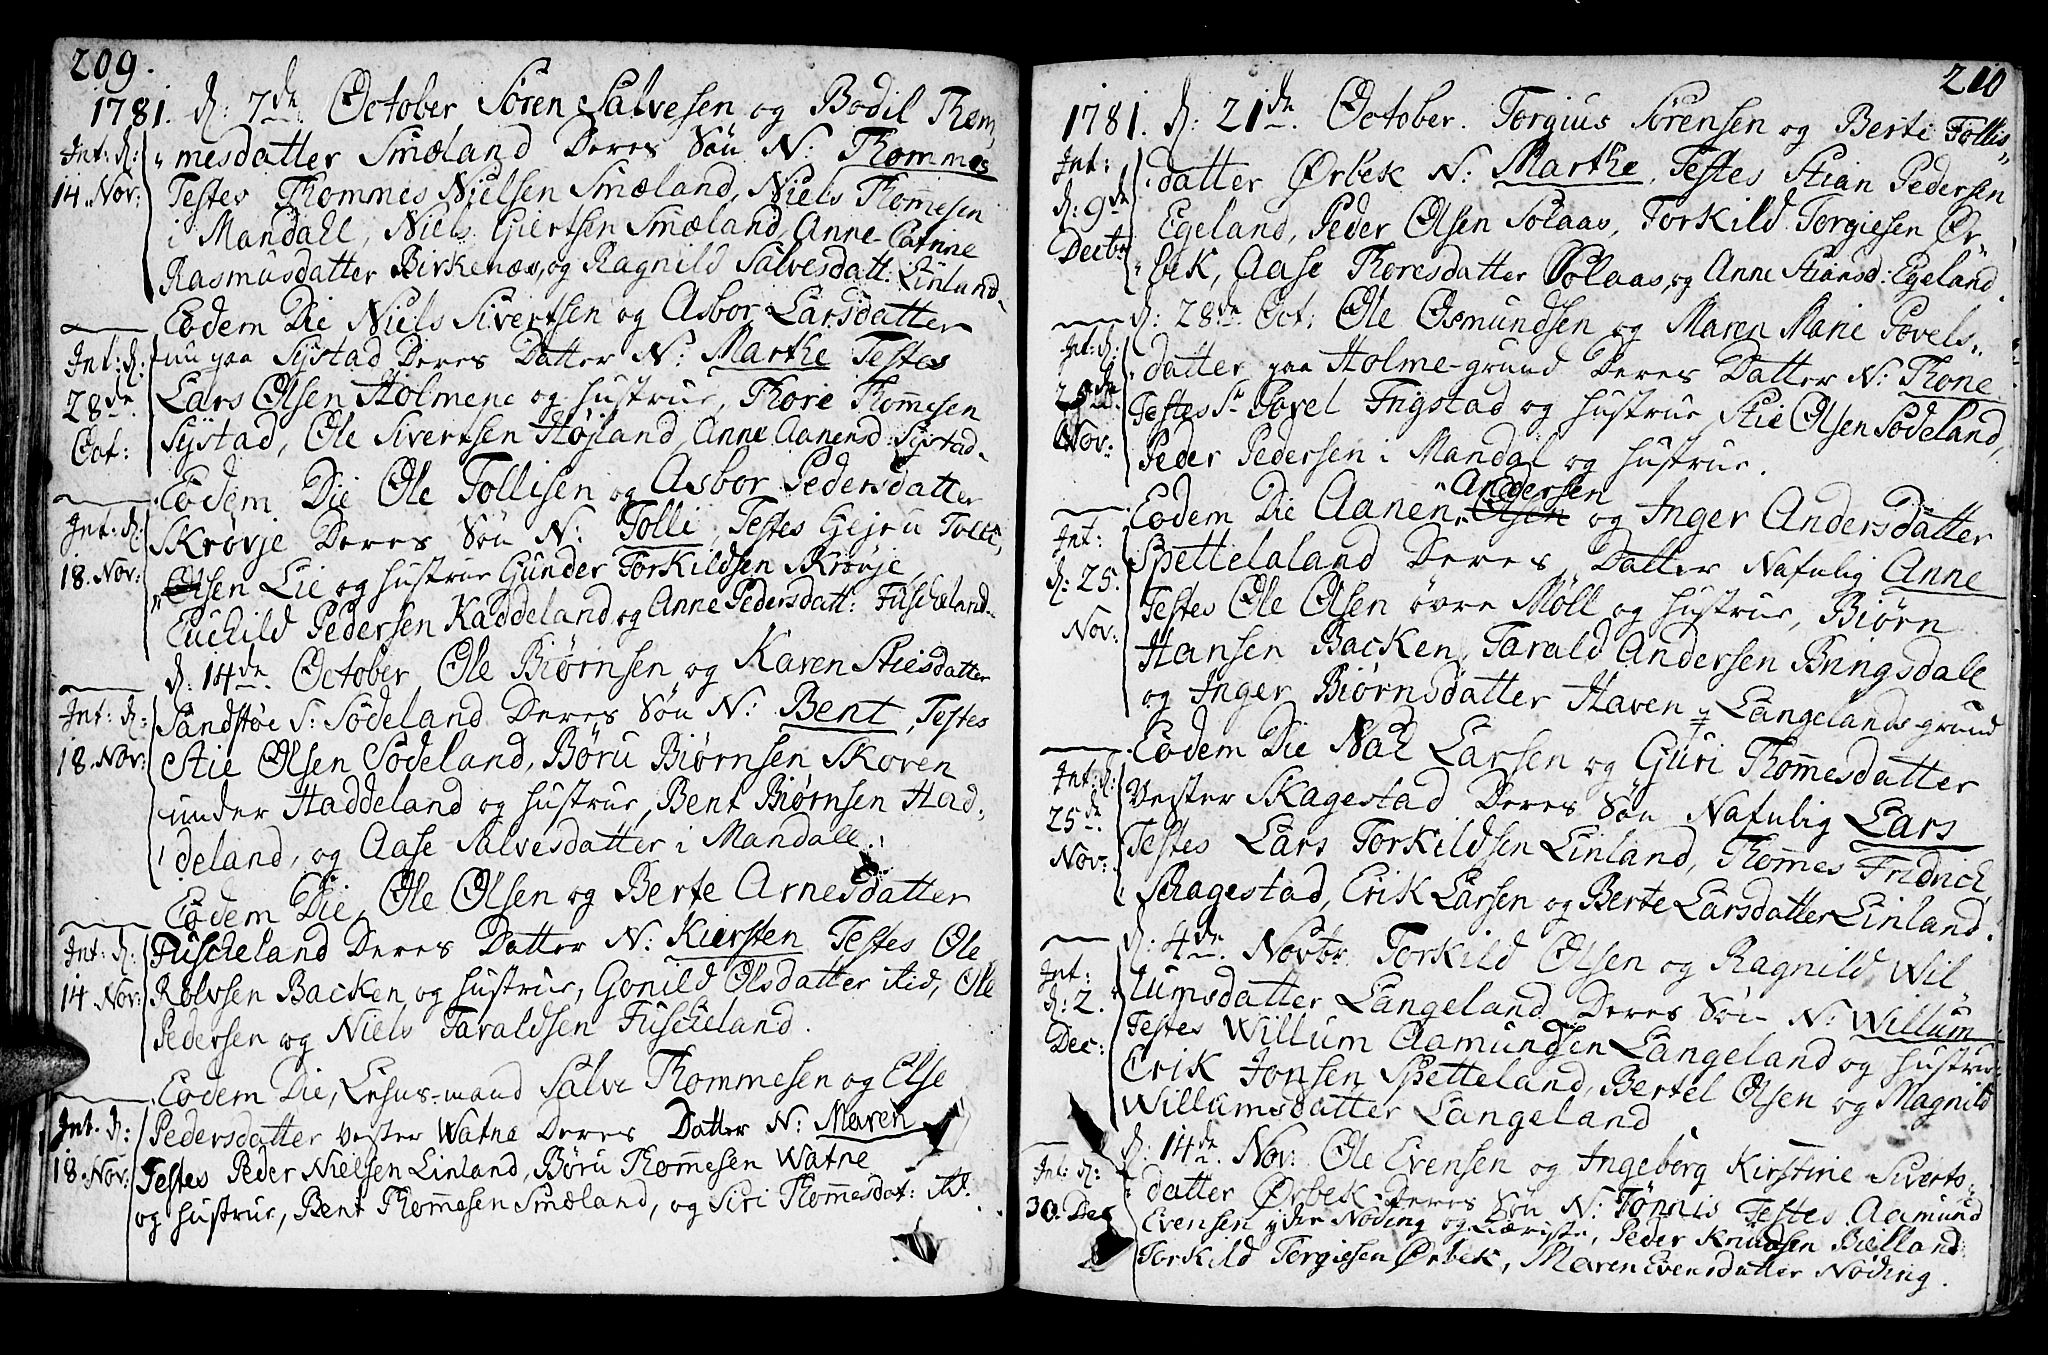 209.
1781. d: 7de October Sören Salvesen og Bodil Thom,
Int: d: „mesdatter Smæland Deres Sön N: Thommes
14. Nov: Testes Thommes Nielsen Smæland, Niels Thom̄esen
i Mandahl, Niels Giertsen Smæland, Anne Catrine
Rasmusdatter Birkenæs, og Ragnild Salvesdatt: Linland.
Eodem Die Niels Sivertsen og Asbor Larsdatter
Int: d: nu paa Sÿstad Deres Datter N: Marthe Testes
28de Lars Olsen Holmene og hustrue, Thore Thom̄esen
Oct: Sÿstad, Ole Sivertsen Höjland, Anne Aanensd: Sÿstad.
Eodem Die Ole Tollisen og Asbor Pedersdatter
Int: d: Skrövje Deres Sön N: Tolli, Testes Gejru Tolli,
18. Nov: „Olsen Lie og hustrue Gunder Torkildsen Skrövje,
Euchild Pedersen Kaddeland, og Anne Pedersdatt: Fuscheland.
d: 14de October Ole Biörnsen og Karen Stiesdatter
Int: d: Sandstöe S: Södeland Deres Sön N: Bent, Testes
18. Nov: Stie Olsen Södeland, Böru Biörnsen Skoven
under Haddeland og hustrue, Bent Biörnsen Had,
deland, og Aase Salvesdatter i Mandall.
Eodem Die, Ole Olsen og Berte Arnesdatter
Int: d: Fuscheland Deres Datter N: Kiersten Testes Ole
14 Nov: Rolvsen Backen og hustrue, Gonild Olsdatter itid, Ole
Pedersen og Niels Taraldsen Fuscheland.
Eodem Die, Lehns-mand Salve Thommesen og Else
Int. d: Pedersdatter Vester Watne Deres Datter N: Maren
18. Nov: Testes Peder Nielsen Linland, Böru Thom̄esen Watne
og hustrue, Bent Thom̄esen Smæland, og Siri Thom̄esdat: it.
210
1781. d: 21de October. Torgius Sörensen og Berte Tollis„
Int: datter Örbek N: Marthe, Testes Stian Pedersen
d: 9de Egeland, Peder Olsen Solaas, Torkild Torgiesen Ör„
Decbr „bek, Aase Thoresdatter Solaas, og Anne Stiansd: Egeland.
d: 28de Oct: Ole Osmundsen og Maren Marie Povels„
Int: d: datter paa Holme-grund Deres Datter N: Thone
25de Testes Sr Povel Frigstad og hustrue, Stie Olsen Södeland,
Nov: Peder Pedersen i Mandal og hustrue.
Andersen
Eodem Die Aanen „Olsen og Inger Andersdatter
Int: Spettelaland Deres Datter Nafnlig Anne
d: 25. Testes Ole Olsen övre Möll og hustrue, Biörn
Nov: Hansen Backen, Tarald Andersen Bringsdall
og Inger Biörnsdatter Haven Langelands-grund
Eodem Die Nal Larsen og Guri Thom̄esdatter
Int: d: Vester Skagestad Deres Sön Nafnlig Lars
25de Testes Lars Torkildsen Linland, Thom̄es Fridrich
Nov: Skagestad, Erik Larsen og Berte Larsdatter Linland.
d: 4de Novbr Torkild Olsen og Ragnild Wil„
Int: lumsdatter Langeland Deres Sön N: Willum
d: 2. Testes Willum Aamundsen Langeland og hustrue
Dec: Erik Jonsen Spetteland, Bertel Olsen og Magnild
Willumsdatter Langeland
d: 14de Nov: Ole Evensen og Ingeborg Kirstine Siverts„
Int: d: datter Örbek Deres Sön N: Tönnis Testes Aamund
30. Dec Evensen ydre Nöding og Kieriste, Peder Knudsen Bielland
Torkild Torgiesen Örbek, Maren Evensdatter Nöding.